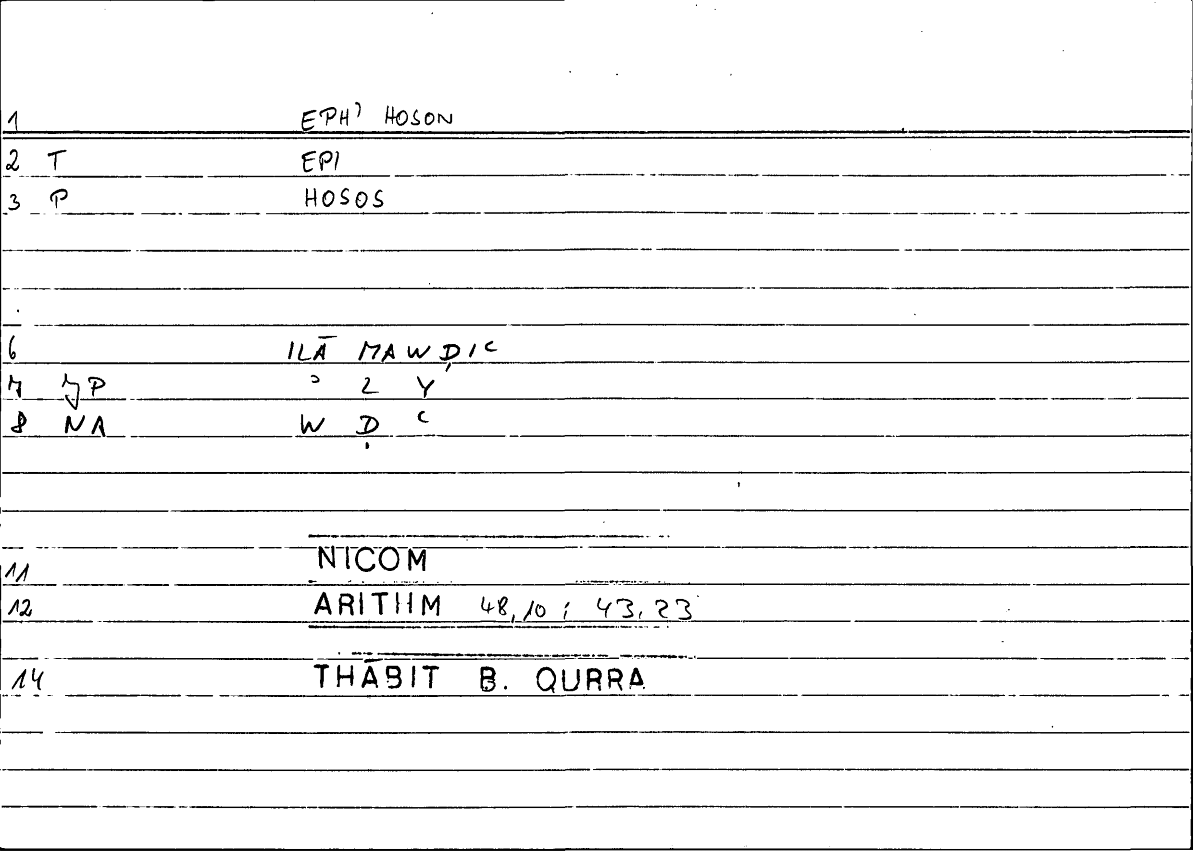 1 EPH' HOSON
2 T EPI
3 P HOSOS
6 ILĀ MAWḌIʿ
7 JP ʾ L Y
8 NA W Ḍ ʿ
11 NICOM
12 ARITHM 48,10 ; 43,23
14 THĀBIT B. QURRA